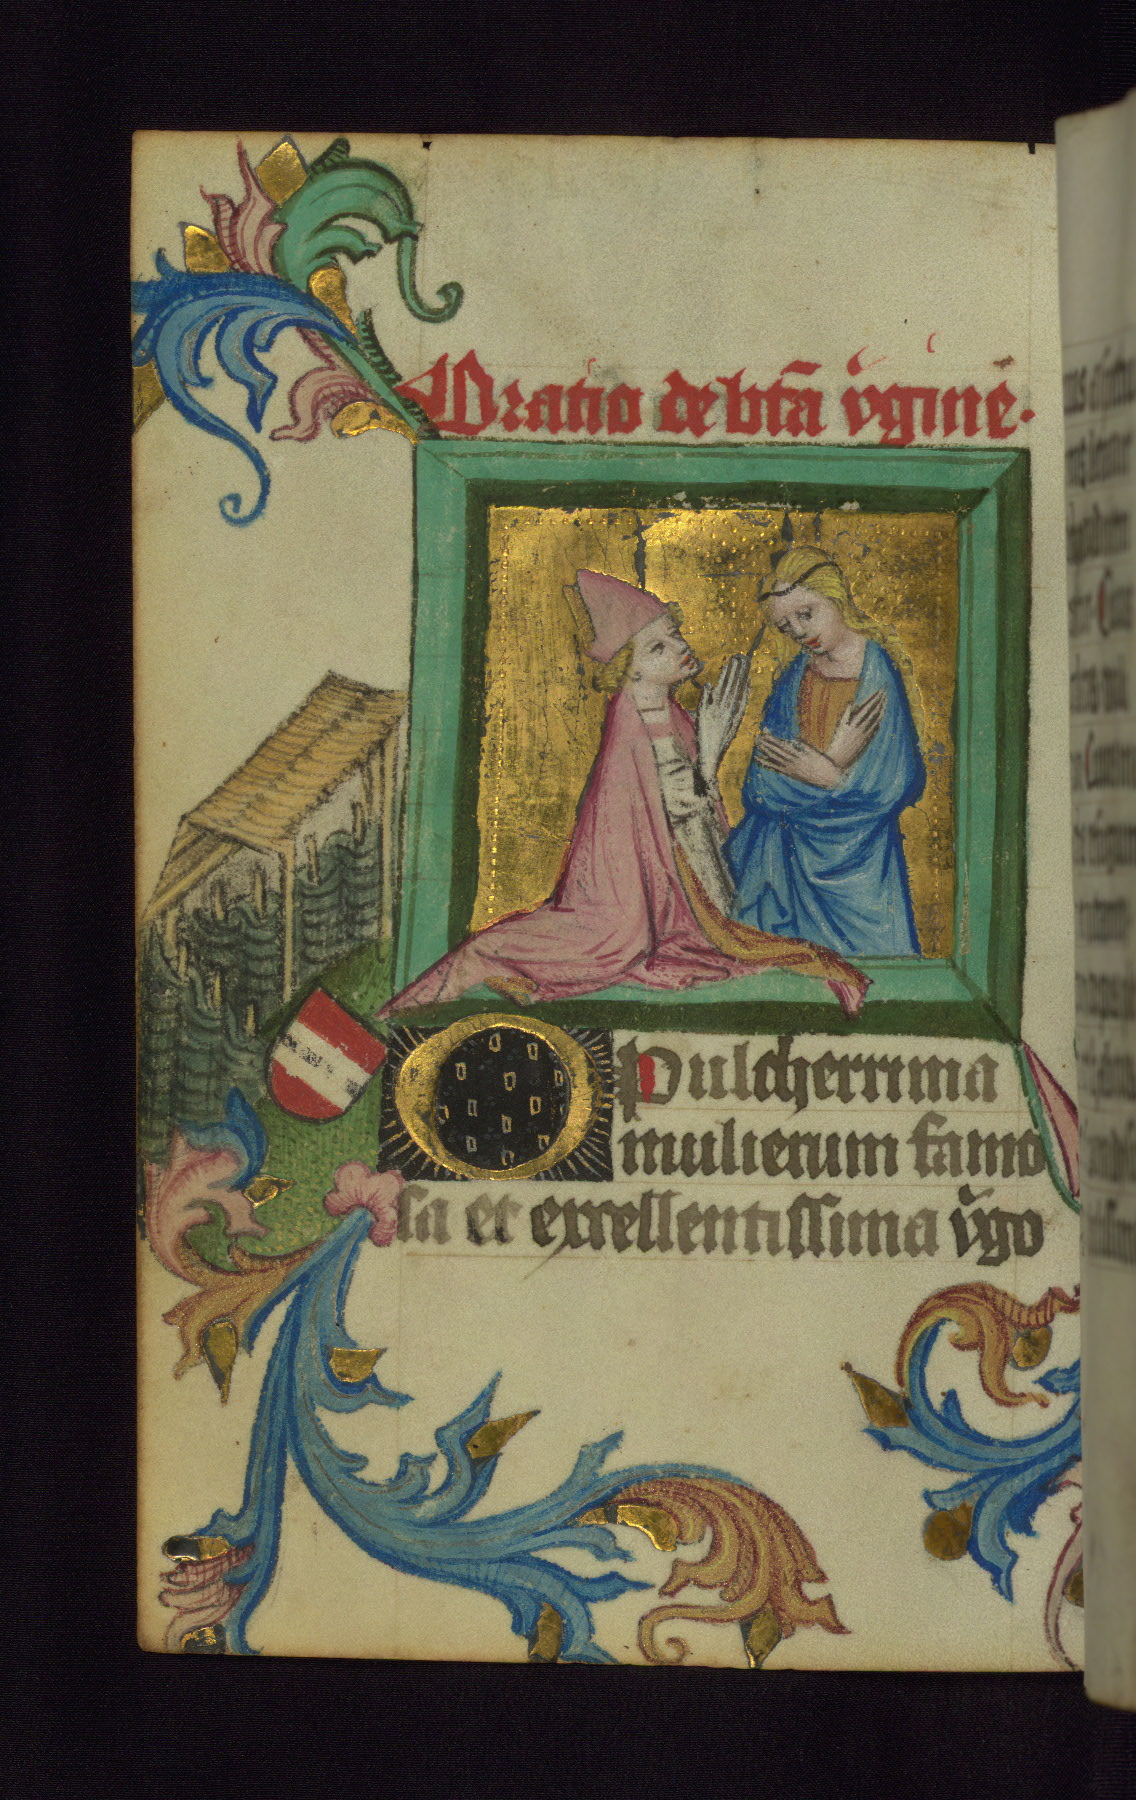 Oratio de btā v̄gine᷒.
O Pulcherrima
mulierum famo
sa et excellentissima v̄go